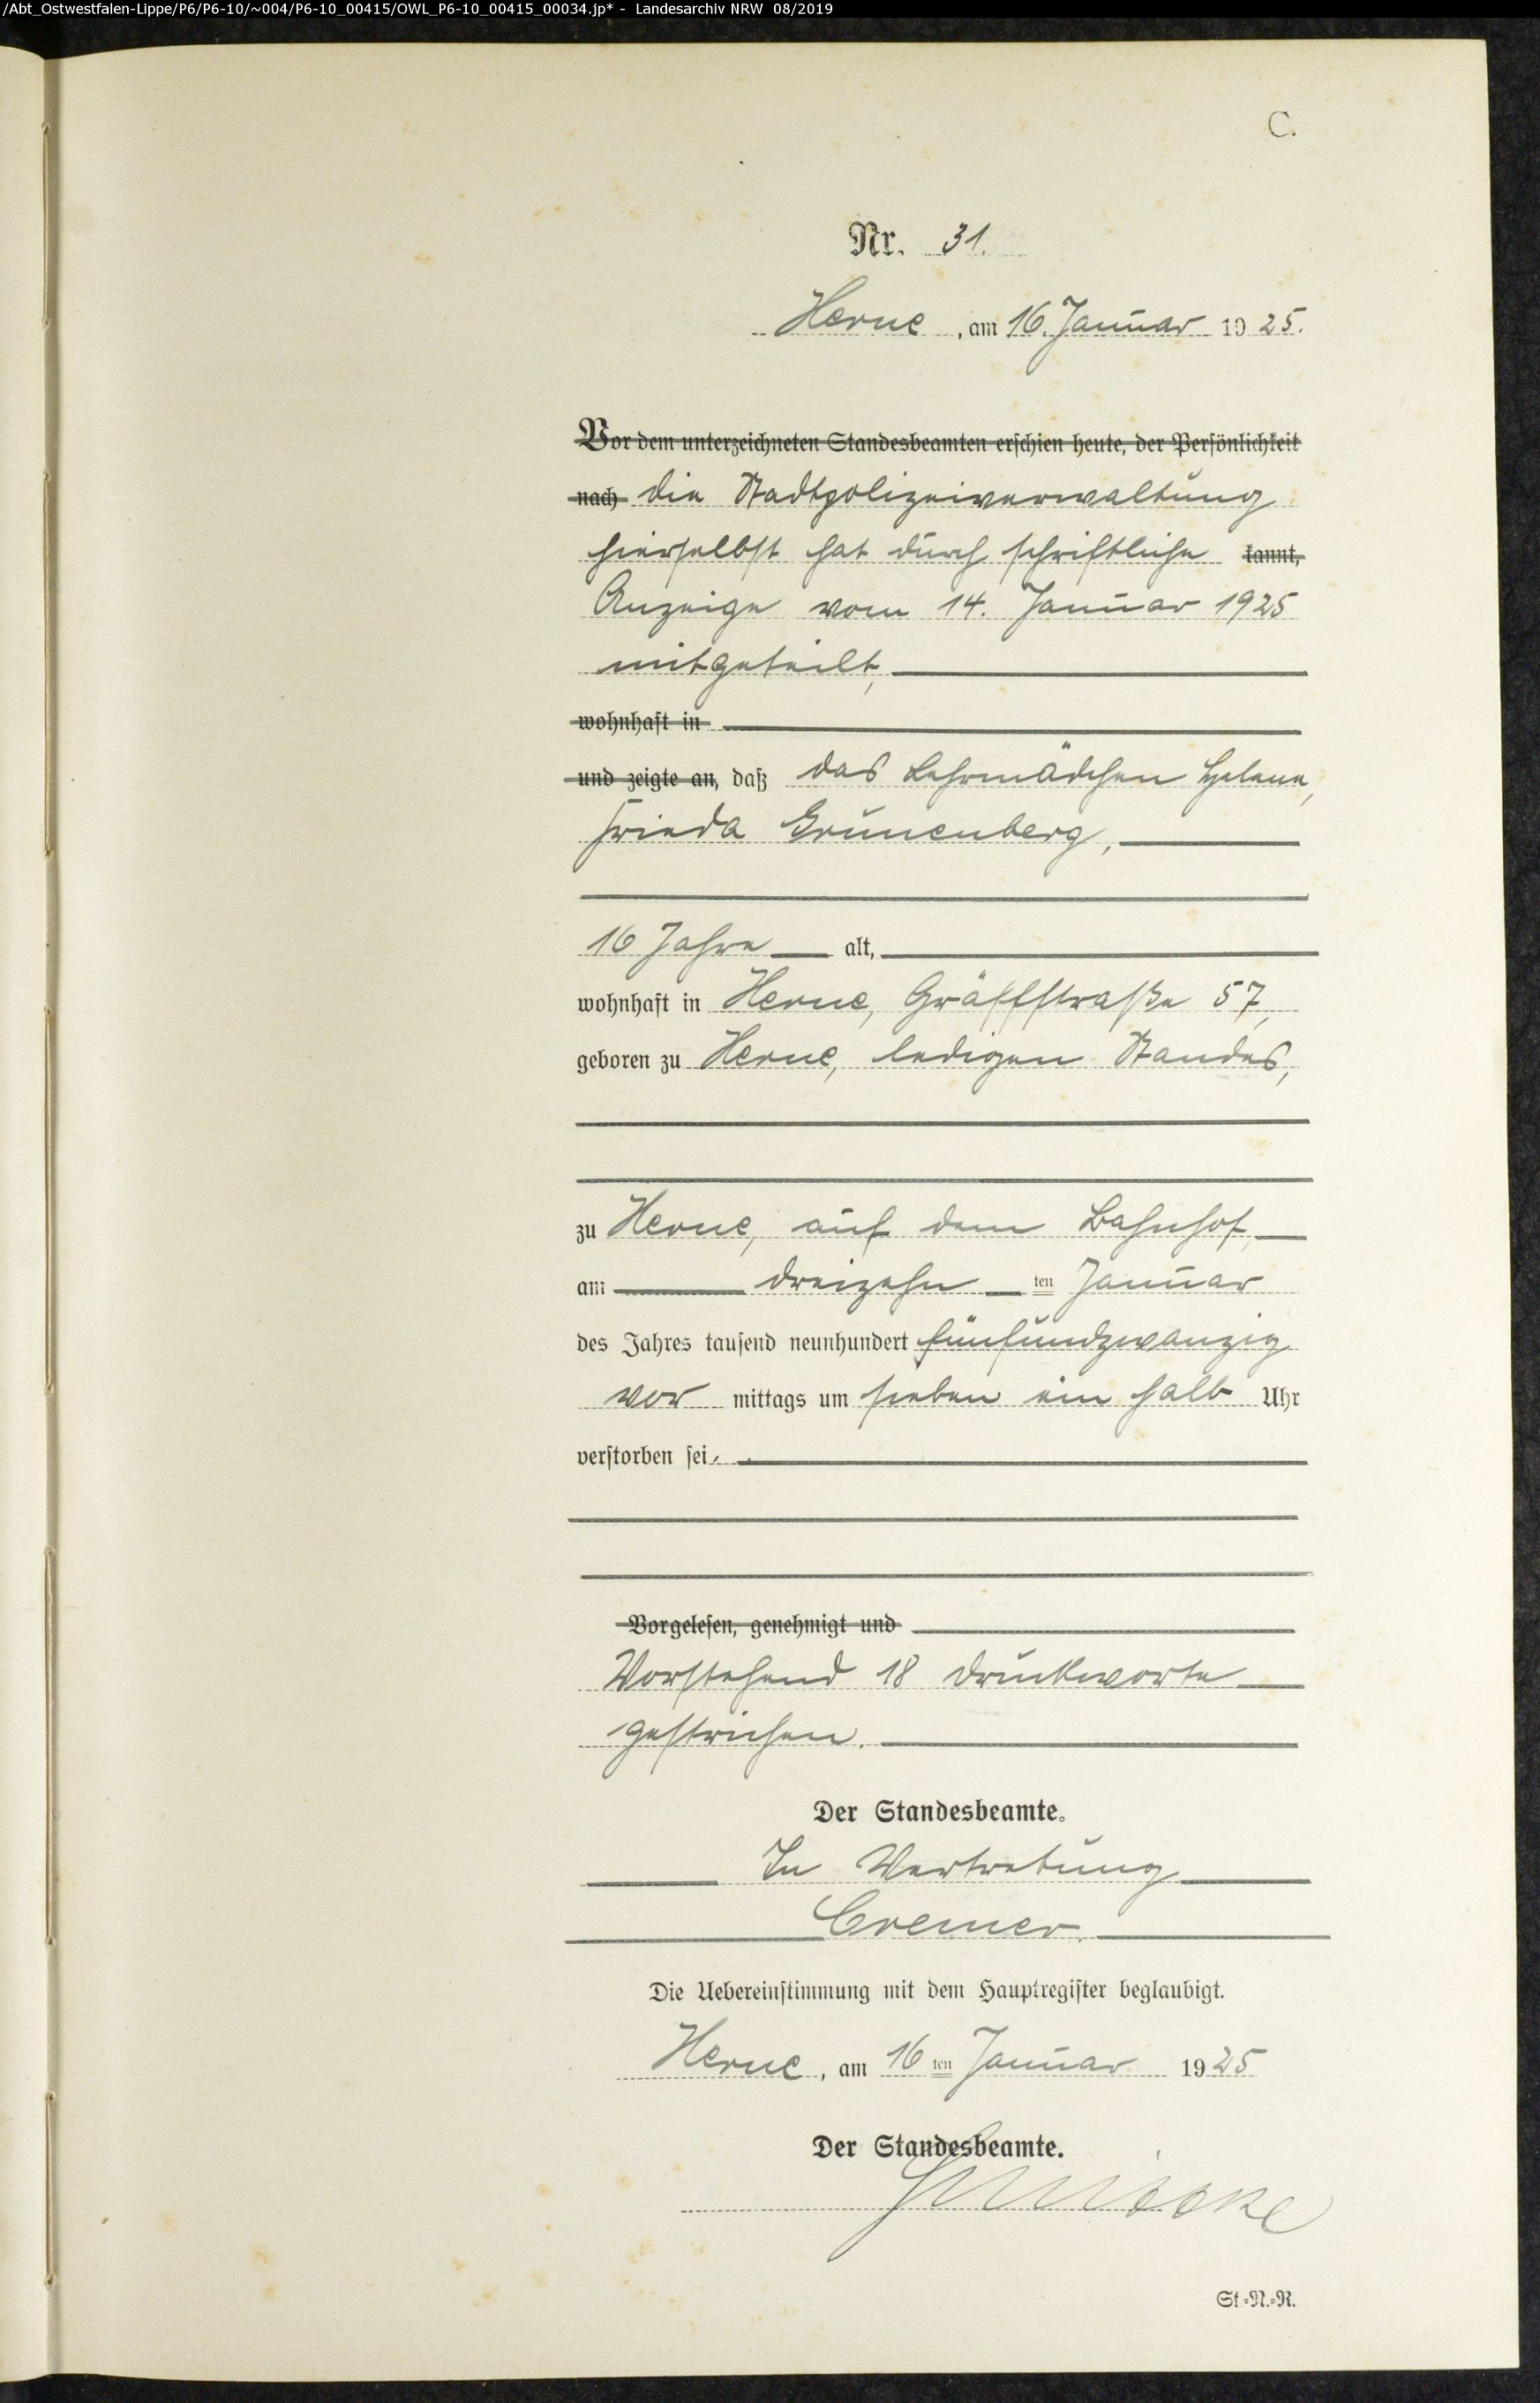 /Abt_Ostwestfalen-Lippe/P6/P6-10/~004/P6-10_00415/OWL_P6-10_00415_00034.jp* - Landesarchiv NRW 08/2019
C.
Nr. 31.
Herne, am 16. Januar 1925.
Vor dem unterzeichneten Standesbeamten erschien heute, der Persönlichkeit
nach die Stadtpolizeiverwaltung
hierselbst hat durch schriftliche kannt,
Anzeige vom 14. Januar 1925
mitgeteilt,
wohnhaft in
und zeigte an, daß das Lehrmädchen Helene,
Frieda Grünenberg,
16 Jahre alt,
wohnhaft in Herne, Gräffstraße 57,
geboren zu Herne, ledigen Standes,
zu Herne, auf dem Bahnhof,
am dreizehn ten Januar
des Jahres tausend neunhundert fünfundzwanzig
vor mittags um sieben ein halb Uhr
verstorben sei.
Vorgelesen, genehmigt und
Vorstehend 18 Druckworte
gestrichen.
Der Standesbeamte.
In Vertretung
Cremer.
Die Uebereinstimmung mit dem Hauptregister beglaubigt.
Herne, am 16 ten Januar 1925
Der Standesbeamte.
St.=N.=R.